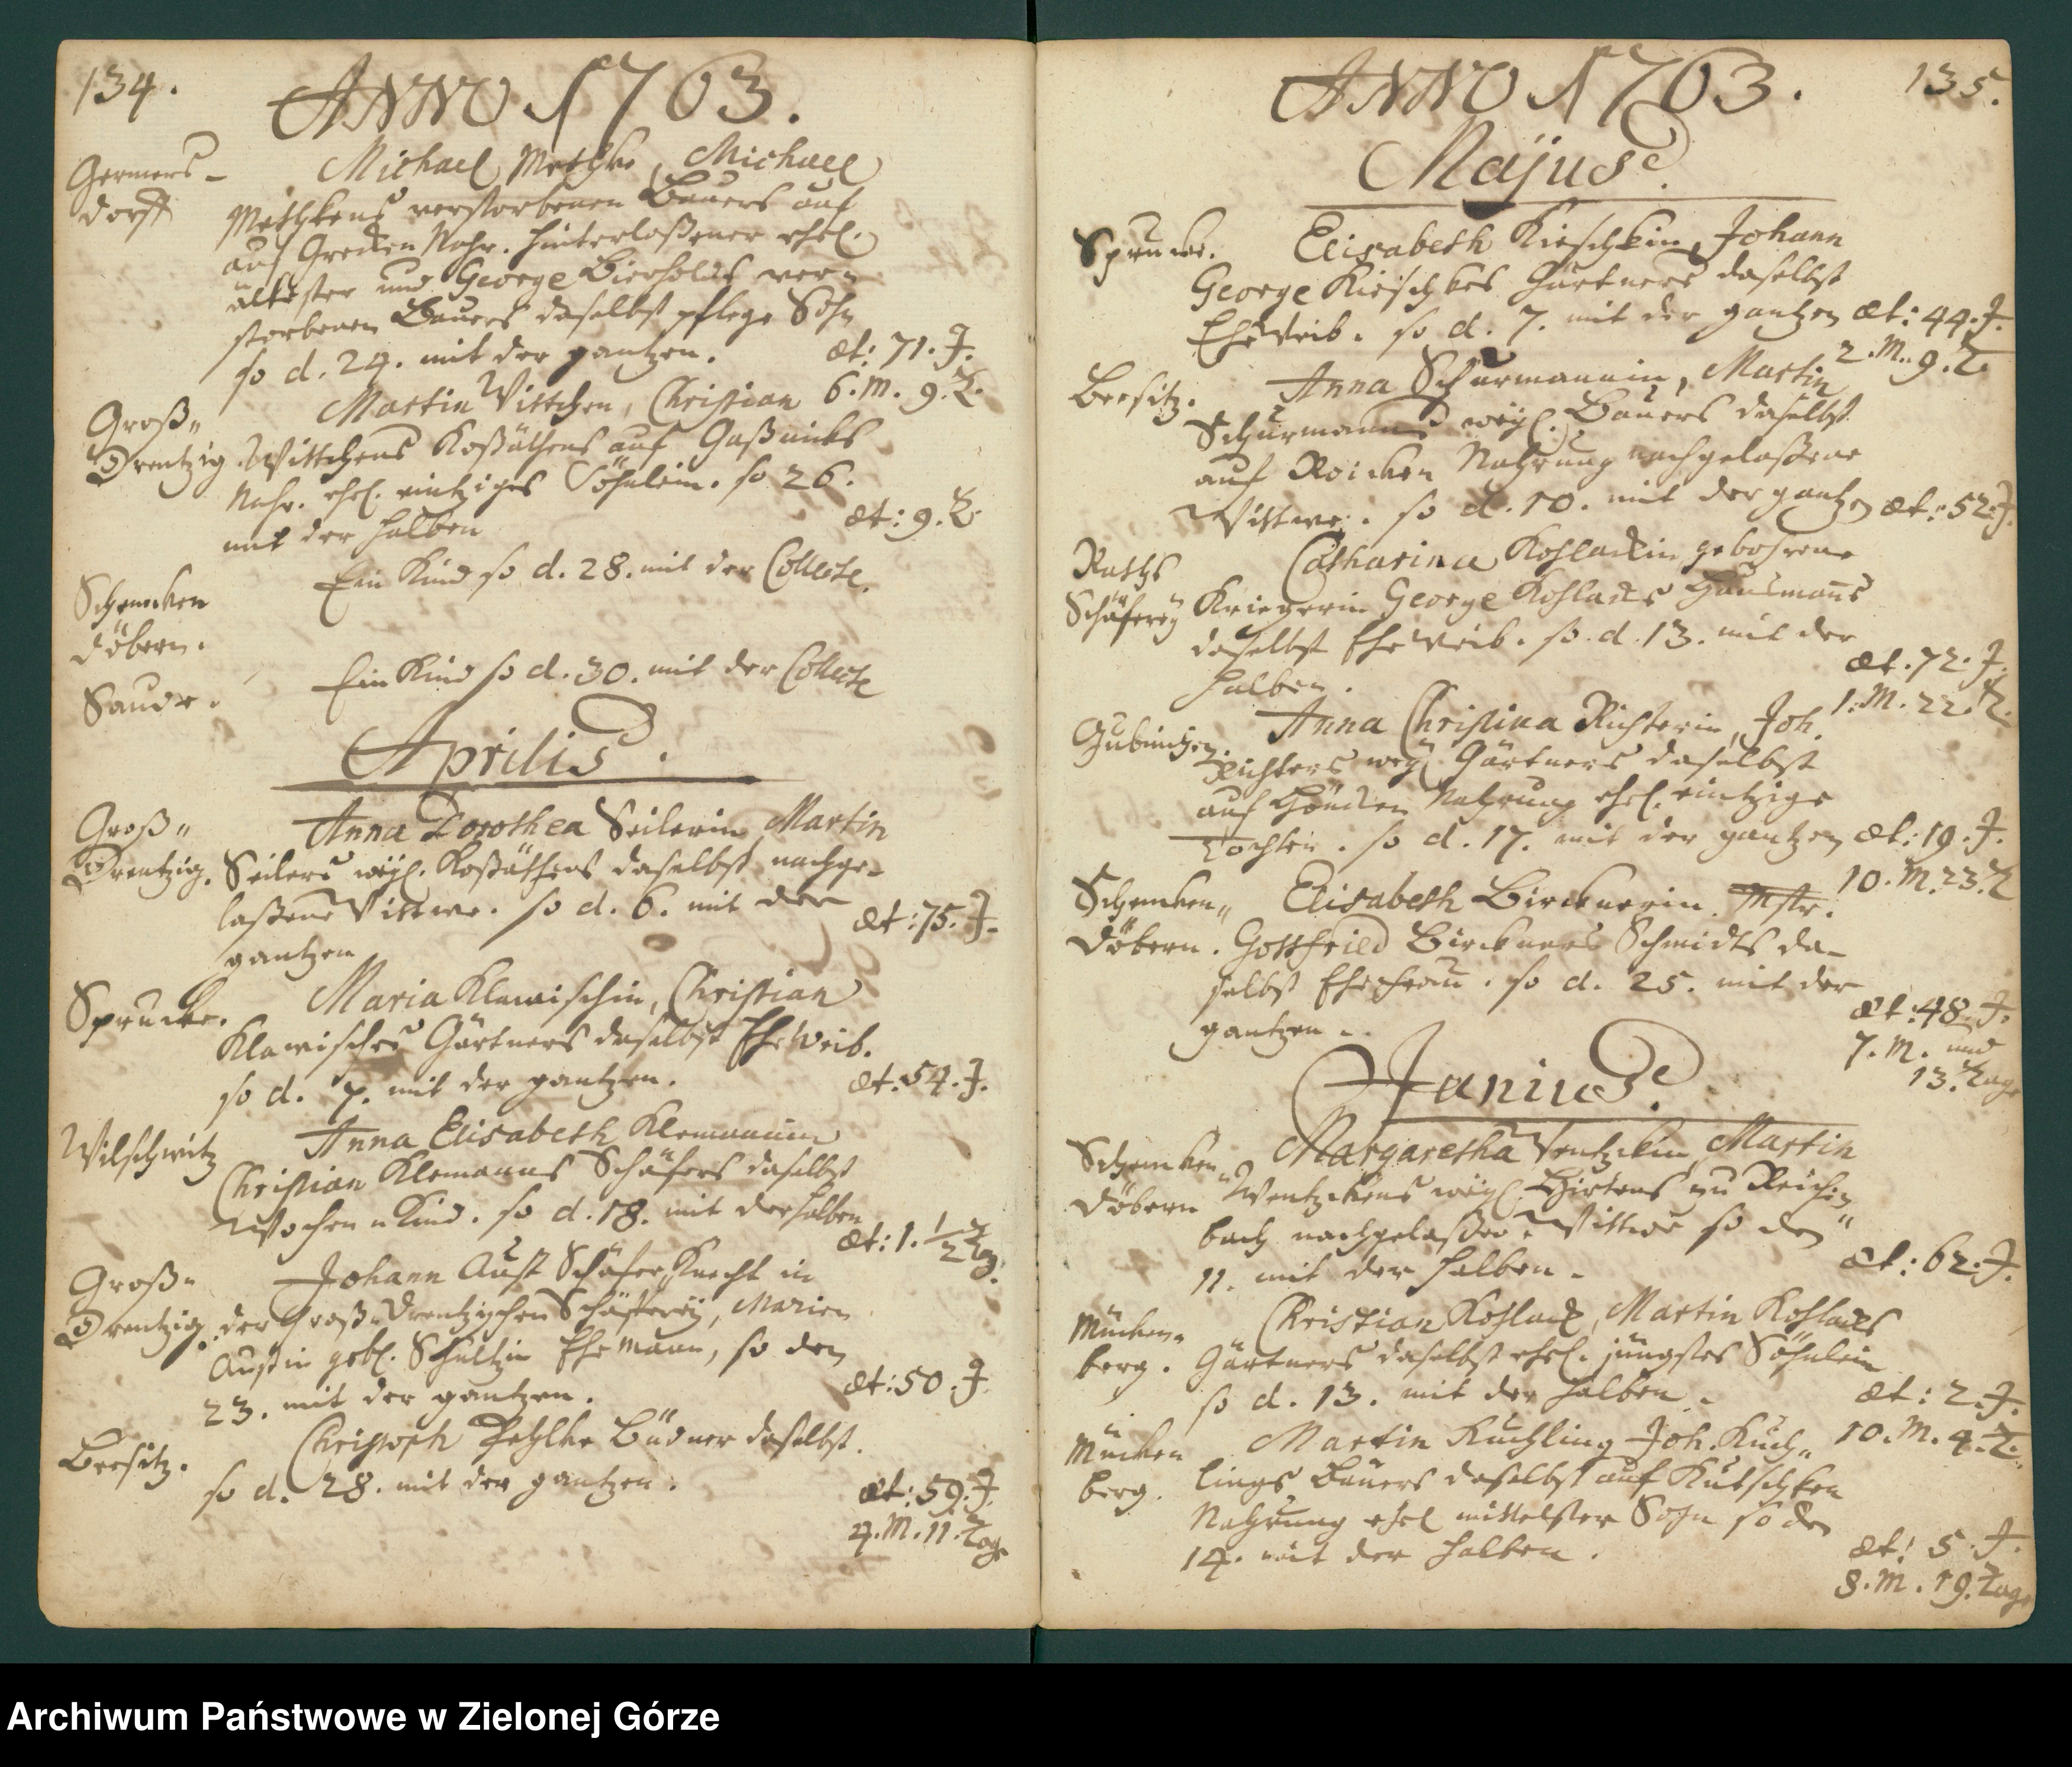 134.
ANNO 1763.
Germers-
dorff
Michael Methke, Michael
Methkens verstorbenen Bauers auf
auf Grecken Nahr. hinterlaßener ehel.
ältester und George Bierholds ver-
storbenen Bauers daselbst pflege Sohn
so d. 24. mit der gantzen.
æt: 71. J.
6. M. 9. T.
Groß-
Drentzig.
Martin Wittchen, Christian
Wittchens Koßäthens auf Gaßnicks
Nahr. ehel. eintziges Söhnlein. so 26.
mit der halben
æt: 9. T.
Schencken
döbern.
Ein Kind so d. 28. mit der Collecte.
Saude.
Ein Kind so d. 30. mit der Collecte
Aprilis.
Groß-
Drentzig.
Anna Dorothea Seilerin, Martin
Seilers weyl. Koßäthens daselbst nachge-
laßene Wittwe. so d. 6. mit der
gantzen
æt: 75. J.
Sprucke.
Maria Klawischin, Christian
Klawisches Gärtners daselbst Ehe Weib.
so d. 7. mit der gantzen.
æt. 54. J.
Wilschwitz
Anna Elisabeth Klemannin
Christian Klemanns Schäfers daselbst
Wochen Kind. so d. 18. mit der halben
æt: 1. 1/2 Tag.
Groß-
Drentzig.
Johann Aust Schäfer Knecht in
der Groß Drentzigschen Schäfferey, Marien
Austin gebl. Schultzin Ehe Mann, so den
23. mit der gantzen.
æt: 50. J.
Beesitz.
Christoph Pehlke Büdner daselbst.
so d. 28. mit der gantzen.
æt: 59. J.
4. M. 11. Tage
135.
ANNO 1763.
Majus.
Sprucke.
Elisabeth Kieschkin, Johann
George Kieschkes Gärtners daselbst
Ehe Weib. so d. 7. mit der gantzen
æt: 44. J.
2. M. 9. T.
Beesitz.
Anna Schurmannin, Martin
Schurmanns weyl. Bauers daselbst
auf Roicken Nahrung nachgelaßene
Wittwe. so d. 10. mit der gantzen
æt: 52. J.
Raths
Schäferey
Catharina Kohlackin gebohrene
Kriegerin George Kohlacks Haußmanns
daselbst Ehe Weib. so d. 13. mit der
halben.
æt. 72. J.
1. M. 22. T.
Gubinchen.
Anna Christina Richterin, Joh.
Richters weyl. Gärtners daselbst
auf Hönicken Nahrung ehel. eintzige
Tochter. so d. 17. mit der gantzen
æt: 19. J.
10. M. 23. T.
Schencken-
döbern.
Elisabeth Bircknerin. Mstr.
Gottfried Birckners Schmidts da-
selbst Ehefrau. so d. 25. mit der
gantzen.
æt: 48. J.
7. M. und
13. Tage
Junius.
Schencken-
döbern
Margaretha Wentzckin Martin
Wentzckens weyl. Hirtens zu Reichen-
bach nachgelaßene Wittwe so den
11. mit der halben.
æt: 62. J.
Mücken-
berg.
Christian Kohlack, Martin Kohlacks
Gärtners daselbst ehel. jüngstes Söhnlein
so d. 13. mit der halben.
æt: 2. J.
10. M. 4. T.
Mücken
berg.
Martin Kuchling Joh. Kuch-
lings Bauers daselbst auf Kutschken
Nahrung ehel mittelster Sohn so den
14. mit der halben.
æt: 5. J.
8. M. 19. Tage
Archiwum Państwowe w Zielonej Górze